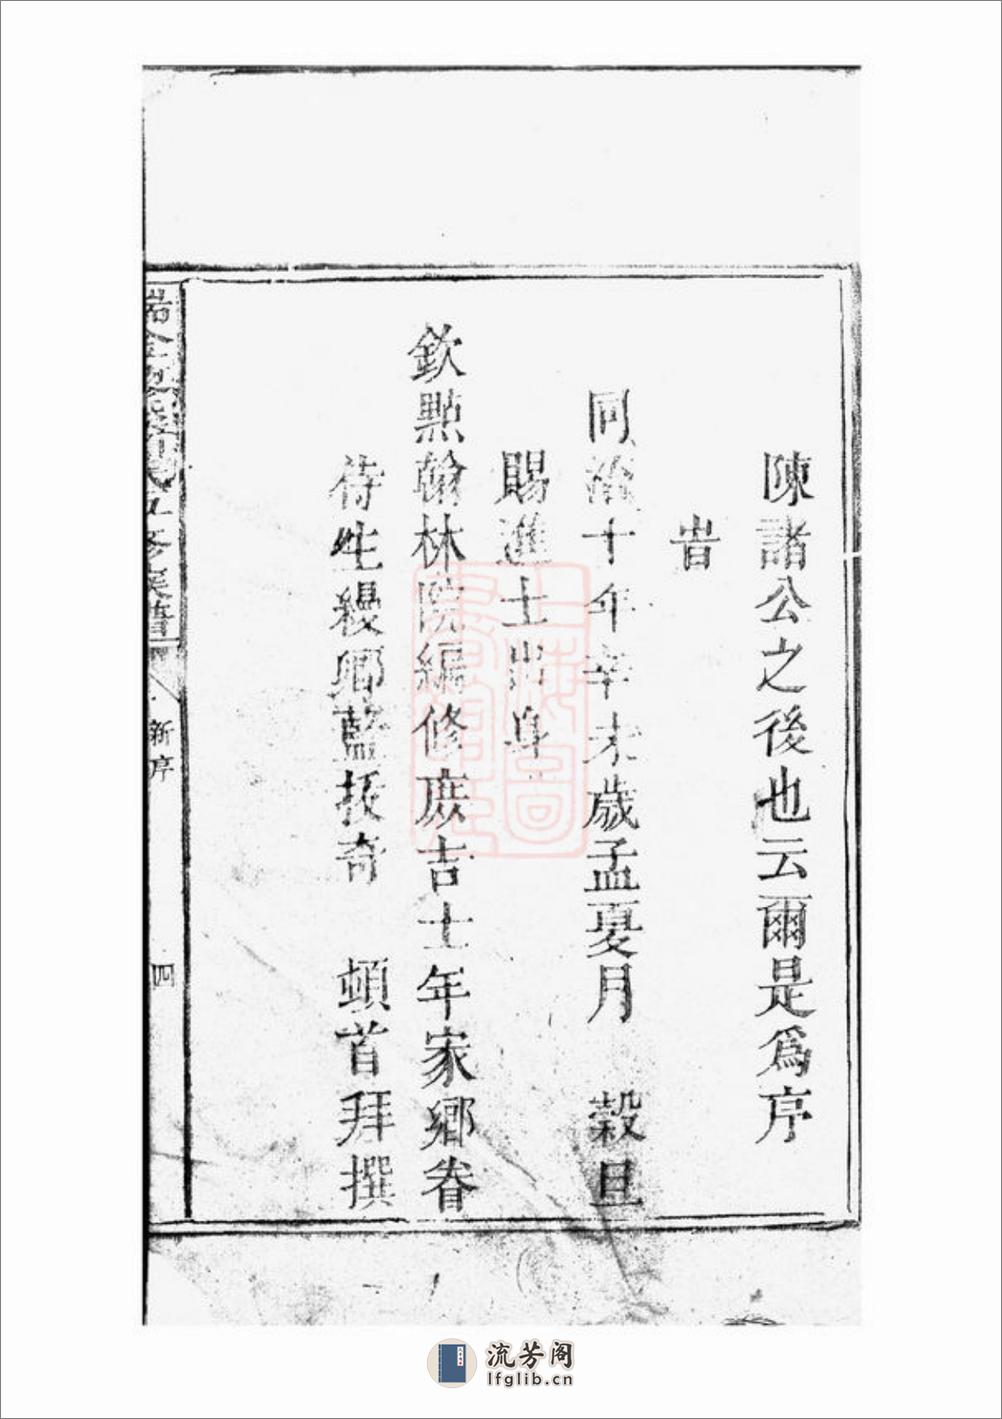 陳諸公之後也云爾是爲序
旹
同治十年辛未歲孟夏月 穀旦
賜進士出身
欽點翰林院編修庶吉士年家鄉眷
侍生縵卿藍拔奇 頓首拜撰
五修族譜
新序
四
流芳阁
lfglib.cn